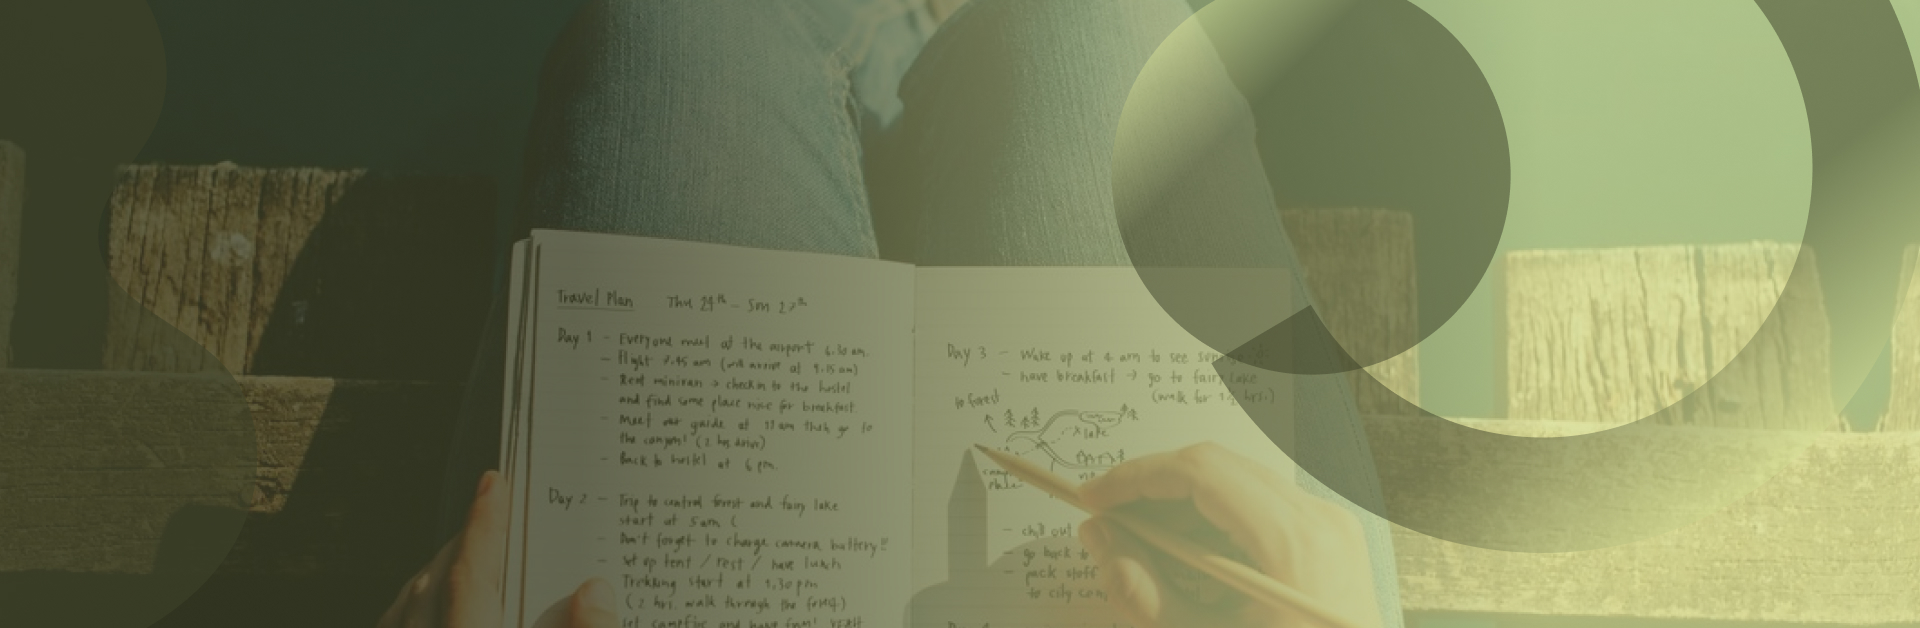 Travel Plan Thu 24th - Sun 27th
Day 1 - Everyone meet at the airport 6.30 am.
- Flight 7.45 am (will arrive at 9.15 am)
- Rent minivan → check in to the hostel
and find some place nice for breakfast.
- Meet our guide at 11 am then go to
the canyon! (2 hrs drive)
- Back to hostel at 6 pm.
Day 2 - Trip to central forest and fairy lake
start at 5 am (
- Don't forget to charge camera battery!!
- Set up tent / rest / have lunch
Trekking start at 1.30 pm
(2 hrs. walk through the forest)
set campfire and have fun!
Day 3 - Wake up at 4 am to see
- have breakfast → go to fairy lake
(walk for hrs)
to forest
lake
camp
place
- chill out
- go back to
- pack stuff
to city